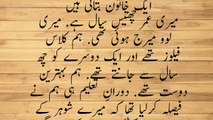 ایک خاتون بتاتی ہیں
میری عمر پچیس سال ہے۔ میری
لوو میرج ہوئی تھی۔ ہم کلاس
فیلوز تھے اور ایک دوسرے کو چھ
سال سے جانتے تھے۔ ہم بہترین
دوست تھے۔ دورانِ تعلیم ہی ہم نے
فیصلہ کرلیا تھا کہ میرے شوہر کے